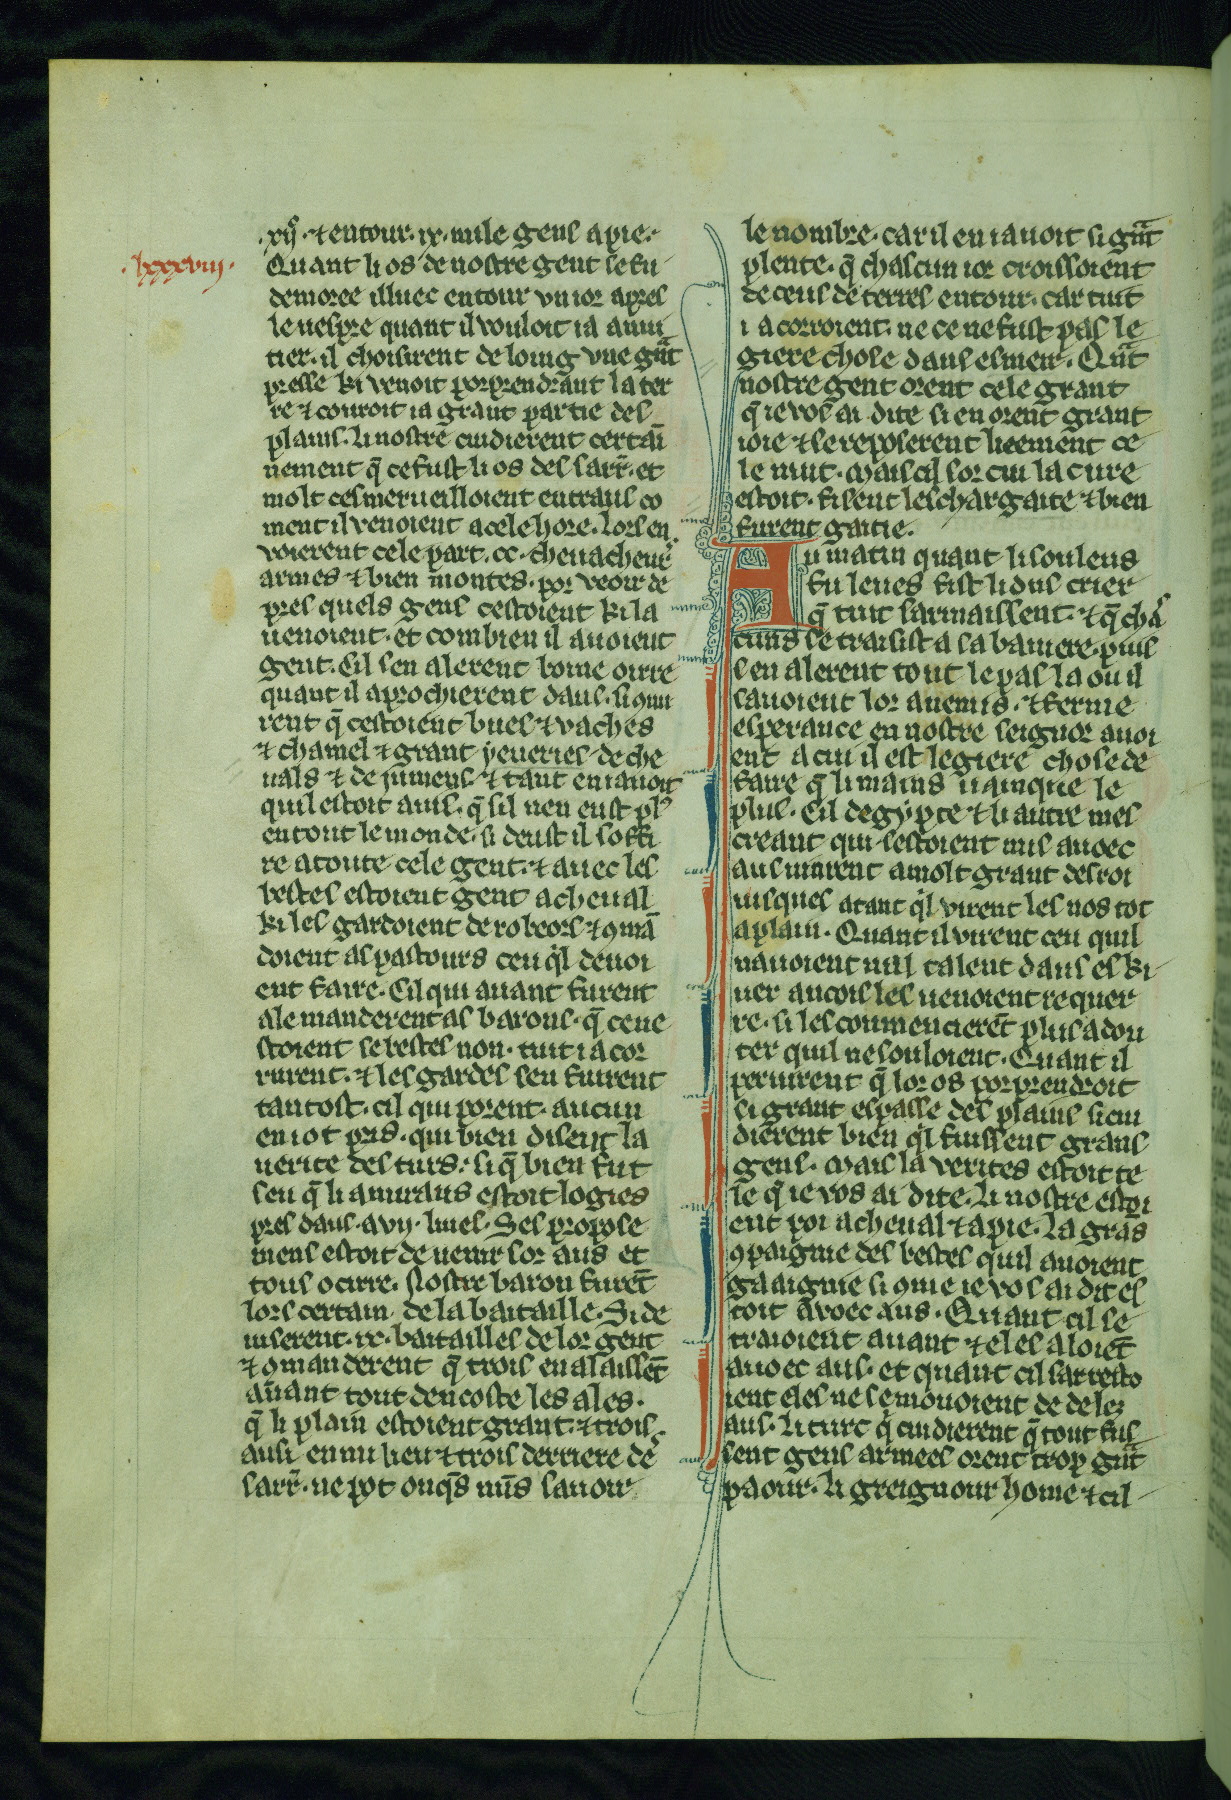 .xijͨ. ⁊ entour .ix. mile gens a pie.
.lxxxviij.
Quant li os de nostre gent se fu
demoree illuec entour vn ior apres
le uespre quant il vouloit ia anui
tier. il choisirent de loing vne gᵃnt
presse ki venoit porprendrant la ter
re ⁊ couroit ia grant partie des
plains. li nostre cuidierent certai
nement q̄ ce fust li os des sarr̄. et
molt cesmerueilloient entraus co
ment il venoient a cele hore. lors en
voierent cele part .cc. cheuacheurs
armes ⁊ bien montes. por veoir de
pres quels gens cestoient ki la
uenoient. et combien il auoient
gent. Cil sen alerent bone oirre
quant il aprochierent daus. si ꝯnu
rent q̄ cestoient bues ⁊ vaches
⁊ chamel ⁊ grant yeueries de che
uals ⁊ de jumens. ⁊ tant en iauoit
quil estoit auis. q̄ sil nen eust plꝰ
en tout le monde. si deust il soffi
re a toute cele gent. ⁊ auec les
bestes estoient gent a cheual
ki les gardoient de robeors ⁊ ꝯmā
doient as pastours ceu qͥl deuoi
ent faire. Cil qui auant furent
ale manderent as barons. q̄ ce ne
stoient se bestes non. tuit i acor
rurent. ⁊ les gardes sen fuirent
tantost. cil qui porent. aucun
en iot pris. qui bien disent la
uerite des turs. si q̄ bien fut
seu q̄ li amiraus estoit logies
pres daus. a vij. liues. Ses propose
mens estoit de uenir sor aus et
tous ocirre. Nostre baron furēt
lors certain de la bataille. Si de
uiserent .ix. batailles de lor gent
⁊ ꝯmanderent q̄ trois en alaissēt
auant tout dencoste les ales.
q̄ li plain estoient grant. ⁊ trois
ausi en mi lieu ⁊ trois derriere de
sarr̄. ne pot onqs nus sauoir
le nombre. car il en iauoit si gᵃnt
plente. q̄ chascun ior croissoient
de ceus de terres entour. car tuit
i acorroient. ne ce ne fust pas le
giere chose dans esmer. Qᵃnt
nostre gent orent cele grant
q̄ ie vos ai dite si en orent grant
ioie ⁊ se reposerent lieement ce
le nuit. Mais cil sor cui la cure
estoit. fisent leschargaite ⁊ bien
furent gaitie.
Au matin quant li souleus
fu leues fist li dus crier
q̄ tuit sarmaissent. ⁊ q̄ chas
cuns se traisist a sa baniere. puis
sen alerent tout le pas la ou il
sauoient lor anemis. ⁊ ferme
esperance en nostre seignor auoi
ent a cui il est legiere chose de
faire q̄ li mains uainque le
plus. Cil degypte ⁊ li autre mes
creant qui sestoient mis auoec
aus uinrent a molt grant desroi
iusques atant qͥl virent les nos tot
a plain. Quant il virent ceu quil
nauoient nul talent daus eski
uer ancois les uenoient requer
re. si les commencierēt plus a dou
ter quil ne souloient. Quant il
percurent q̄ lor os porprendroit
si grant espasse des plains si cui
dierent bien qͥl fuissent grans
gens. Mais la verites estoit te
le q̄ ie vos ai dite. li nostre estoi
ent poi a cheual ⁊ a pie. La grās
ꝯpaignie des bestes quil auoient
gaaignie si ꝯme ie vos ai dit es
toit avoec aus. Quant cil se
traioient auant ⁊ eles aloiēt
auoec aus. et quant cil sarresto
ient eles ne se mouoient de delez
aus. li turc q̄ cuidierent q̄ tout fus
sent gens armees orent trop gᵃnt
paour. li greignour home ⁊ cil